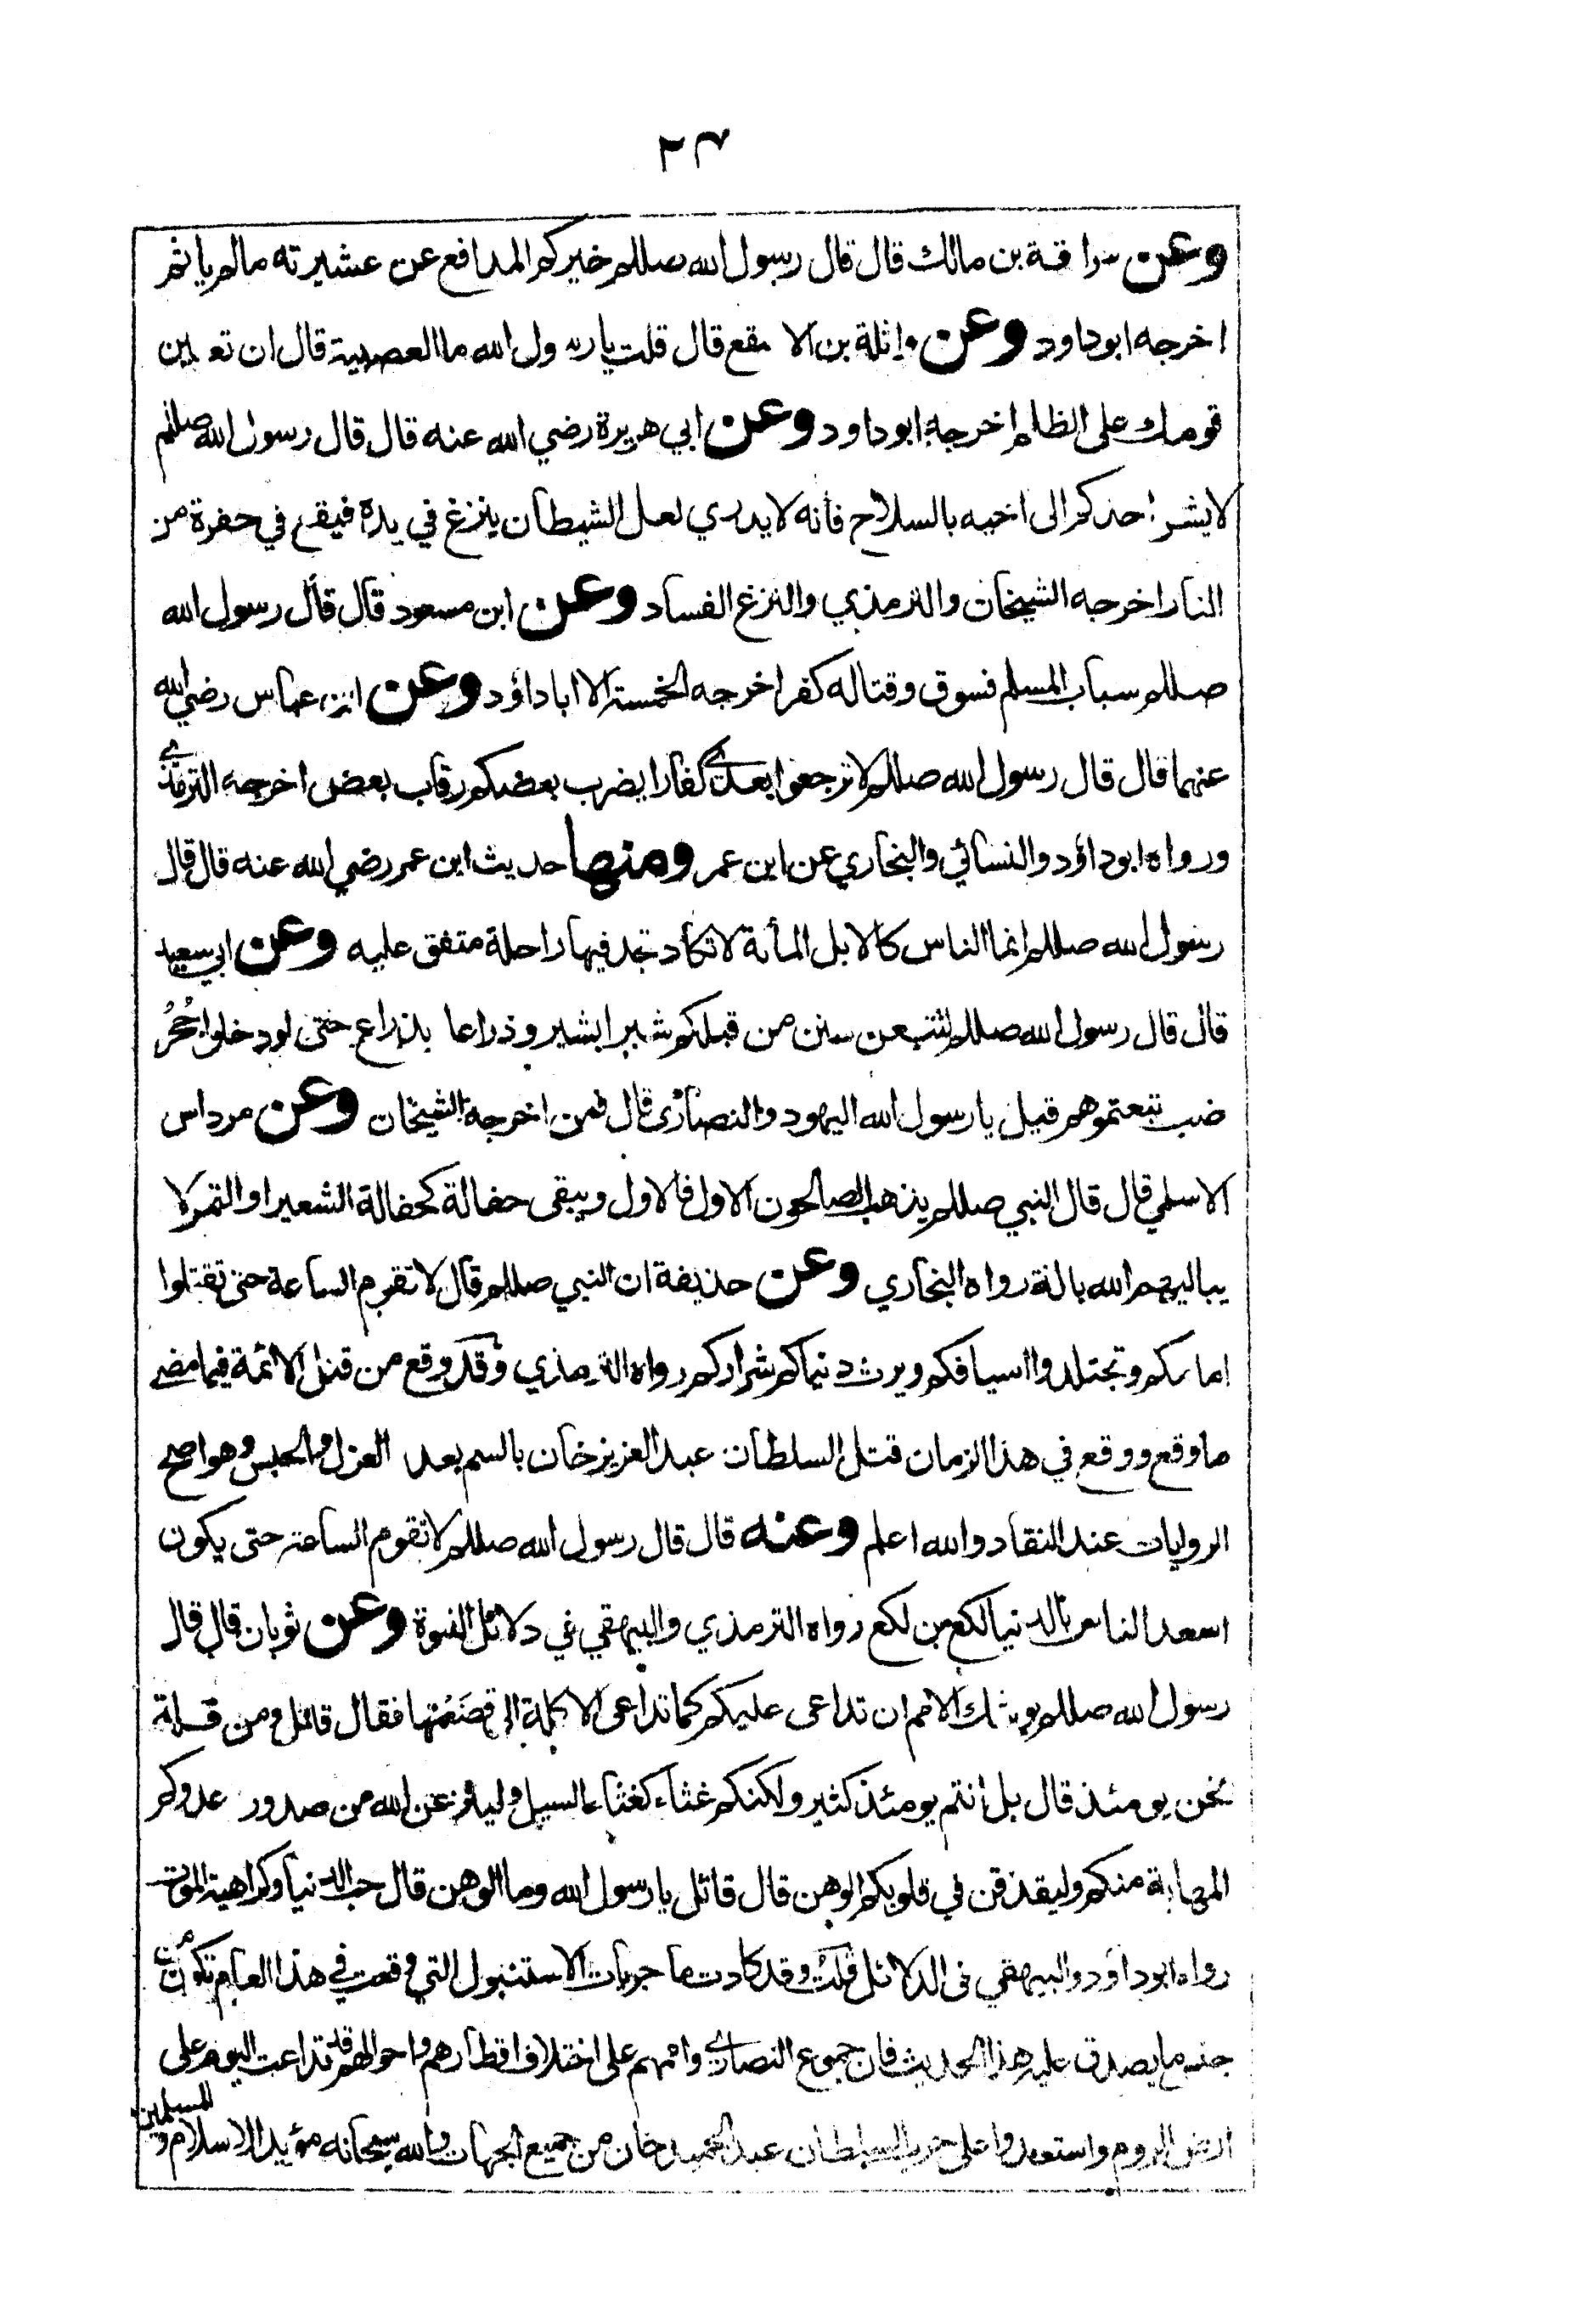 ٢٤
وعن سراقة بن مالك قال قال رسول الله صللم خيركم المدافع عن عشيرته مالم ياثم
اخرجه ابوداود وعن واثلة بن الاسقع قال قلت يا رسول الله ما العصبية قال ان تعين
قومك على الظلم اخرجه ابوداود وعن ابي هريرة رضي الله عنه قال قال رسول الله صللم
لا يشر احدكم الى اخيه بالسلاح فانه لا يدري لعل الشيطان ينزغ في يده فيقع في حفرة من
النار اخرجه الشيخان والترمذي والنزغ الفساد وعن ابن مسعود قال قال رسول الله
صللم سباب المسلم فسوق وقتاله كفر اخرجه الخمسة الا اباداؤد وعن ابن عباس رضي الله
عنهما قال قال رسول الله صللم لا ترجعوا بعدي كفارا يضرب بعضكم رقاب بعض اخرجه الترمذي
ورواه ابوداؤد والنسائي والبخاري عن ابن عمر ومنها حديث ابن عمر رضي الله عنه قال قال
رسول الله صللم انما الناس كالابل المأئة لا تكاد تجد فيها راحلة متفق عليه وعن ابي سعيد
قال قال رسول الله صللم لتتبعن سنن من قبلكم شبرا بشبر وذراعا بذراع حتى لو دخلوا جُحْرُ
ضب تبعتموهم قيل يا رسول الله اليهود والنصارى قال فمن اخرجه الشيخان وعن مرداس
الاسلمي قال قال النبي صللم يذهب الصالحون الاول فالاول ويبقى حفالة كحفالة الشعير او التمر لا
يباليهم الله بالة رواه البخاري وعن حذيفة ان النبي صللم قال لا تقوم الساعة حتى تقتلوا
امامكم وتجتلدوا اسيافكم ويرث دنياكم شراركم رواه الترمذي وقد وقع من قتل الائمة فيما مضى
ما وقع ووقع في هذا الزمان قتل السلطان عبد العزيز خان بالسم بعد العزل والحبس وهو اصح
الروايات عند النقاد والله اعلم وعنه قال قال رسول الله صللم لا تقوم الساعة حتى يكون
اسعد الناس بالدنيا لكع بن لكع رواه الترمذي والبيهقي في دلائل النبوة وعن ثوبان قال قال
رسول الله صللم يوشك الامم ان تداعى عليكم كما تداعى الاكلة الى قصعتها فقال قائل ومن قلة
نحن يومئذ قال بل انتم يومئذ كثير ولكنكم غثاء كغثاء السيل ولينزعن الله من صدور عدوكم
المهابة منكم وليقذفن في قلوبكم الوهن قال قائل يا رسول الله وما الوهن قال حب الدنيا وكراهية الموت
رواه ابوداؤد والبيهقي في الدلائل قلت وقد كادت ماجريات الاستنبول التي وقعت في هذا العام تكون من
جنس ما يصدق عليه هذا الحديث فان جموع النصارى وامهم على اختلاف اقطارهم واحوالهم قد تداعت اليوم على
ارض الروم واستعدوا على حرب السلطان عبد الحميد خان من جميع الجهات والله سبحانه مؤيد الاسلام و
المسلمين